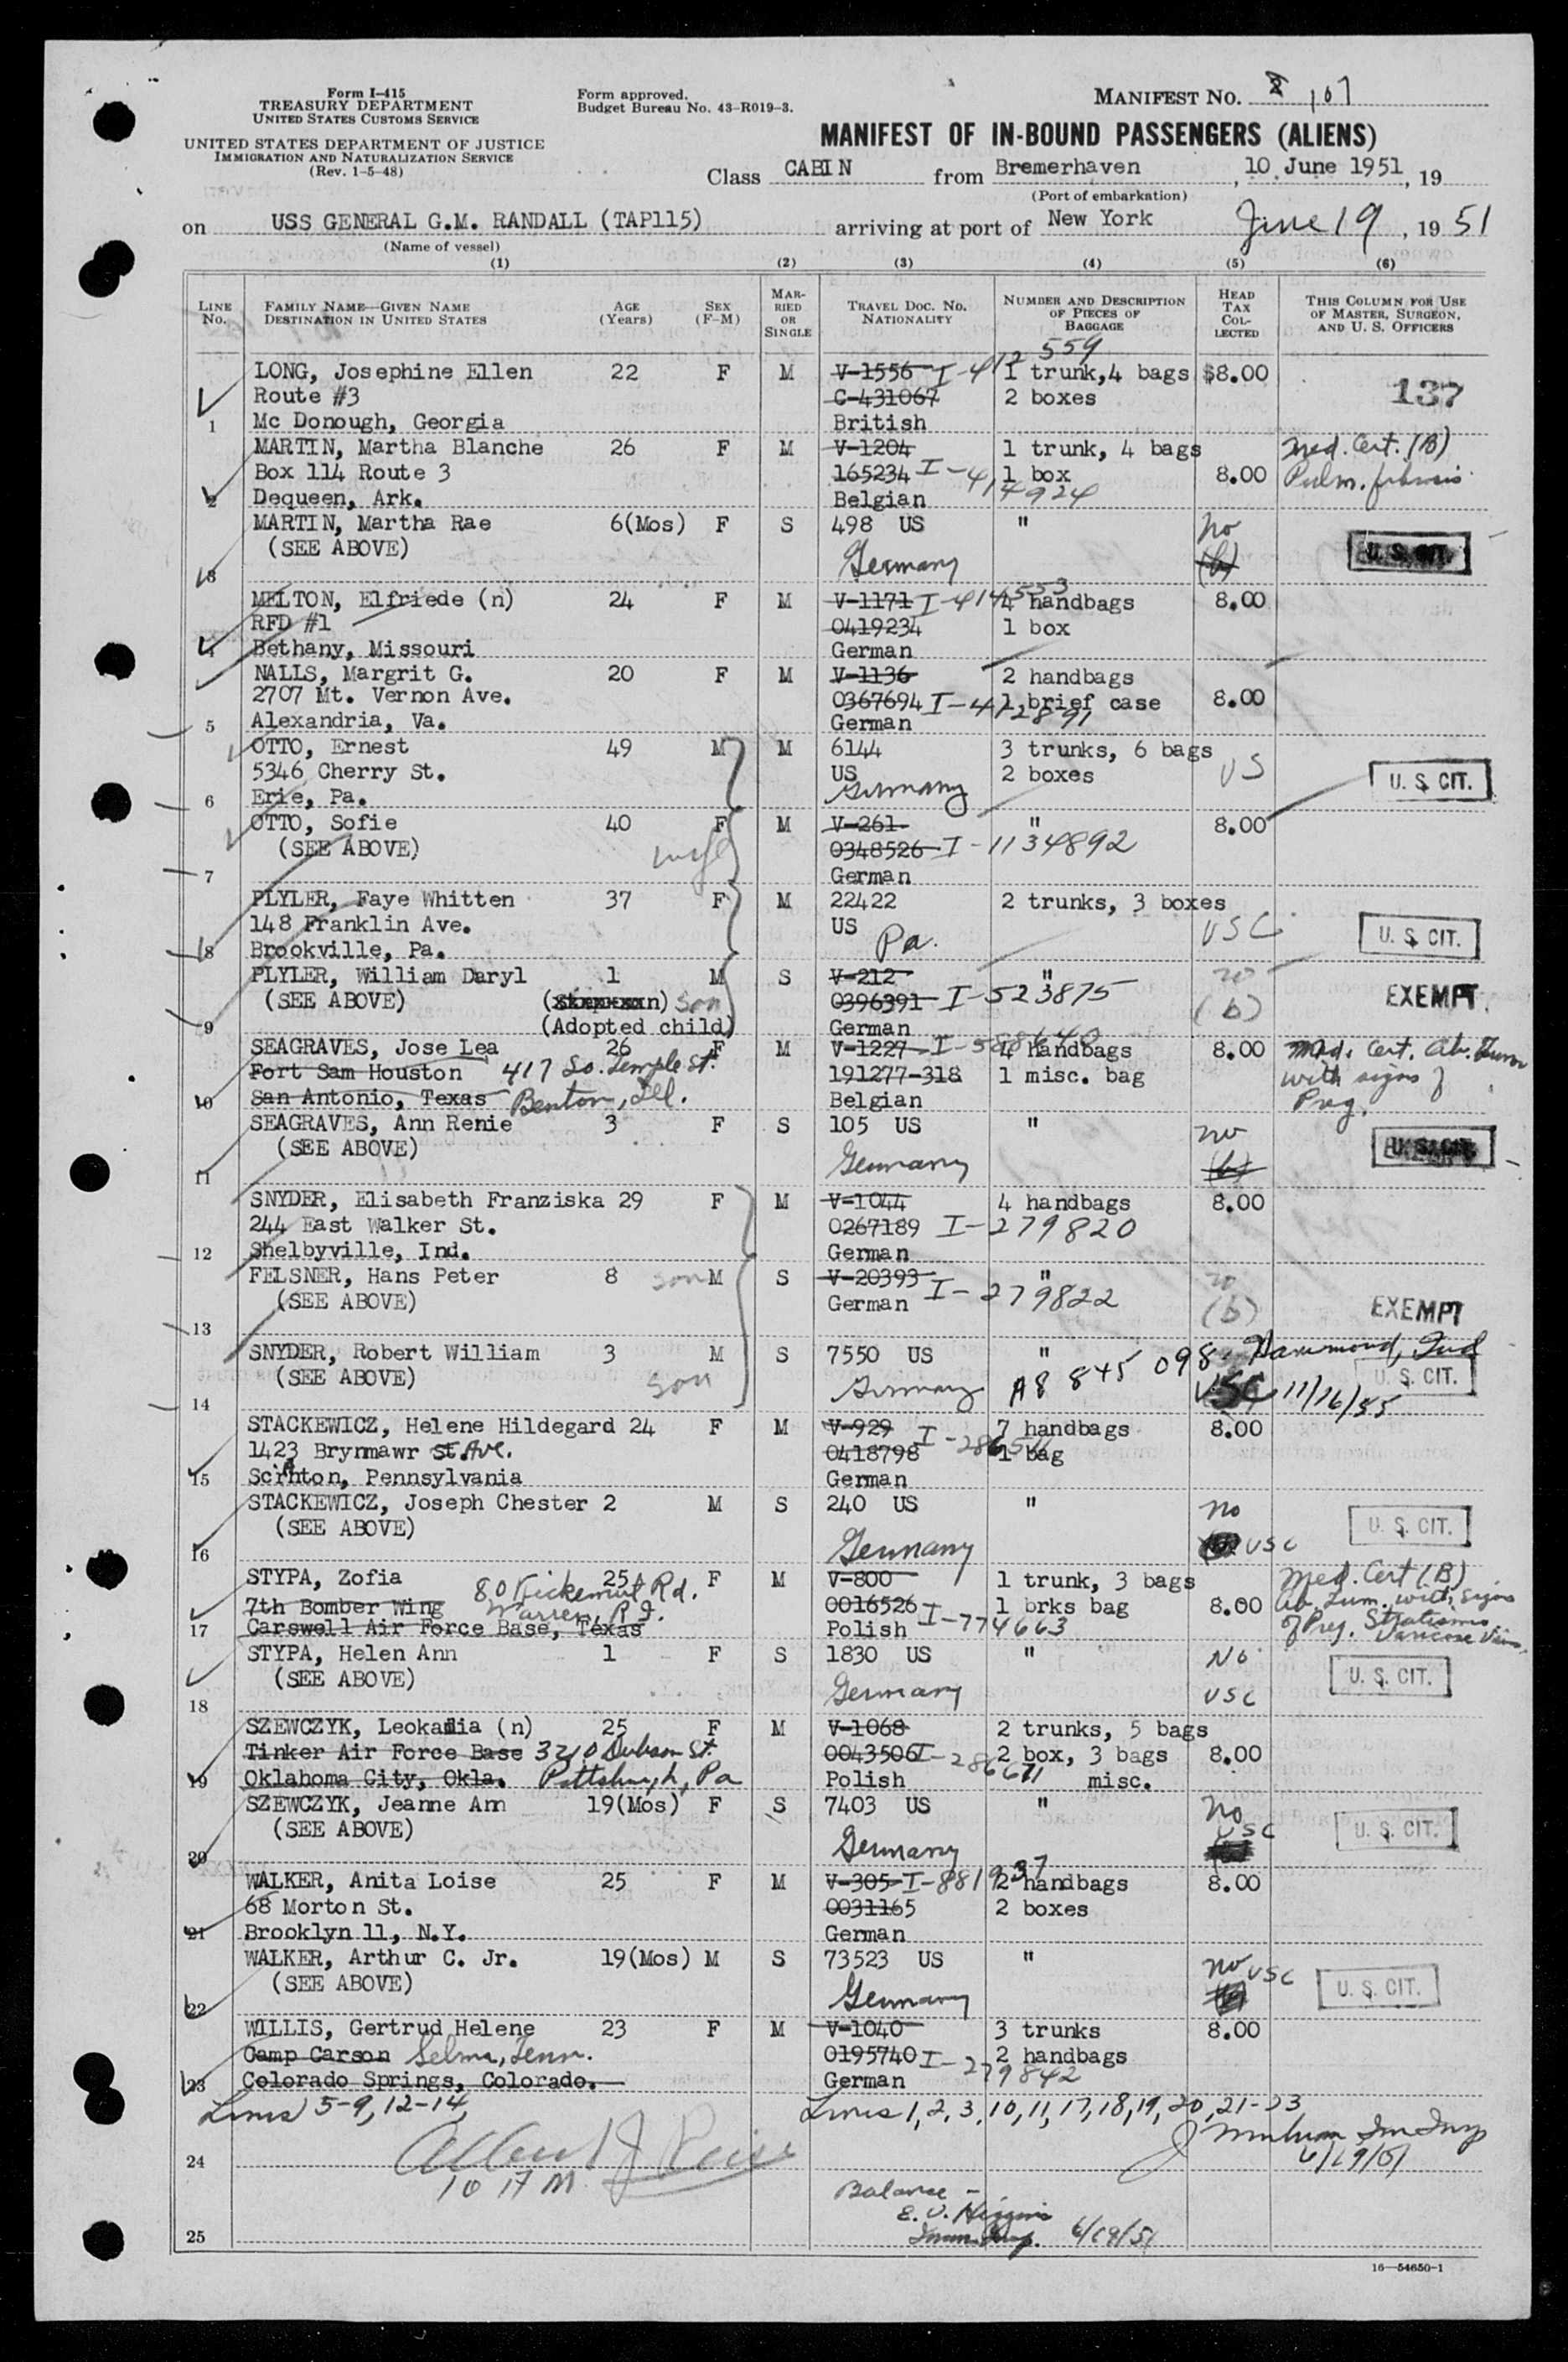 Form I-415
TREASURY DEPARTMENT
UNITED STATES CUSTOMS SERVICE
UNITED STATES DEPARTMENT OF JUSTICE
IMMIGRATION AND NATURALIZATION SERVICE
(Rev. 1-5-48)
Form approved.
Budget Bureau No. 43-R019-3.
MANIFEST NO. 107
MANIFEST OF IN-BOUND PASSENGERS (ALIENS)
Class CABIN from Bremerhaven, 10 June 1951, 19
(Port of embarkation)
on USS GENERAL G.M. RANDALL (TAP115) arriving at port of New York June 19, 1951
(Name of vessel)
(1) (2) (3) (4) (5) (6)
LINE No. FAMILY NAME—GIVEN NAME DESTINATION IN UNITED STATES AGE (Years) SEX (F-M) MARRIED OR SINGLE TRAVEL DOC. NO. NATIONALITY NUMBER AND DESCRIPTION OF PIECES OF BAGGAGE HEAD TAX COLLECTED THIS COLUMN FOR USE OF MASTER, SURGEON, AND U. S. OFFICERS
LONG, Josephine Ellen 22 F M V-1556 I-412559 1 trunk,4 bags $8.00
Route #3 C-431067 2 boxes 137
1 Mc Donough, Georgia British
MARTIN, Martha Blanche 26 F M V-1204 1 trunk, 4 bags Med. Cert. (B)
Box 114 Route 3 165234 I-414924 1 box 8.00 Pulm. fibrosis
2 Dequeen, Ark. Belgian
MARTIN, Martha Rae 6(Mos) F S 498 US " No
(SEE ABOVE) Germany (b) U. S. CIT.
3
MELTON, Elfriede (n) 24 F M V-1171 I-414553 4 handbags 8.00
RFD #1 0419234 1 box
4 Bethany, Missouri German
NALLS, Margrit G. 20 F M V-1136 2 handbags
2707 Mt. Vernon Ave. 0367694 I-412891 1 brief case 8.00
5 Alexandria, Va. German
OTTO, Ernest 49 M M 6144 3 trunks, 6 bags US
5346 Cherry St. US 2 boxes U. S. CIT.
6 Erie, Pa. Germany
OTTO, Sofie 40 F M V-261 " 8.00
(SEE ABOVE) wife 0348526 I-1134892
7 German
PLYLER, Faye Whitten 37 F M 22422 2 trunks, 3 boxes
148 Franklin Ave. US Pa. USC U. S. CIT.
8 Brookville, Pa.
PLYLER, William Daryl 1 M S V-212 " no
(SEE ABOVE) son 0396391 I-523875 (b) EXEMPT
9 (Adopted child) German
SEAGRAVES, Jose Lea 26 F M V-1227 I-588640 4 handbags 8.00 Med. Cert. Ab. Tumor
Fort Sam Houston 417 So. Temple St. 191277-318 1 misc. bag with signs of
10 San Antonio, Texas Benton, Ill. Belgian Preg.
SEAGRAVES, Ann Renie 3 F S 105 US " no
(SEE ABOVE) Germany (b) U. S. CIT.
11
SNYDER, Elisabeth Franziska 29 F M V-1044 4 handbags 8.00
244 East Walker St. 0267189 I-279820
12 Shelbyville, Ind. German
FELSNER, Hans Peter 8 son M S V-20393 " no
(SEE ABOVE) German I-279822 (b) EXEMPT
13
SNYDER, Robert William 3 M S 7550 US " A8 845 098 Hammond, Ind
(SEE ABOVE) son Germany USC U. S. CIT. 11/16/55
14
STACKEWICZ, Helene Hildegard 24 F M V-929 7 handbags 8.00
1423 Brynmawr St. Ave. 0418798 1 bag
15 Scrnton, Pennsylvania German
STACKEWICZ, Joseph Chester 2 M S 240 US " no
(SEE ABOVE) Germany USC U. S. CIT.
16
STYPA, Zofia 25 F M V-800 1 trunk, 3 bags Med. Cert (B)
7th Bomber Wing 80 Kickemuit Rd. 0016526 1 brks bag 8.00 Ab. Tum. with signs
17 Carswell Air Force Base, Texas Warren, R.I. Polish I-774663 of Preg. Varicose Veins
STYPA, Helen Ann 1 F S 1830 US " No
(SEE ABOVE) Germany USC U. S. CIT.
18
SZEWCZYK, Leokadia (n) 25 F M V-1068 2 trunks, 5 bags
Tinker Air Force Base 3210 Dobson St. 0043506 I-286671 2 box, 3 bags 8.00
19 Oklahoma City, Okla. Pittsburgh, Pa Polish misc.
SZEWCZYK, Jeanne Ann 19(Mos) F S 7403 US " No
(SEE ABOVE) Germany USC U. S. CIT.
20
WALKER, Anita Loise 25 F M V-305 I-881937 2 handbags 8.00
68 Morton St. 0031165 2 boxes
21 Brooklyn 11, N.Y. German
WALKER, Arthur C. Jr. 19(Mos) M S 73523 US " no
(SEE ABOVE) Germany USC U. S. CIT.
22
WILLIS, Gertrud Helene 23 F M V-1040 3 trunks 8.00
Camp Carson Selma, Tenn. 0195740 I-279842 2 handbags
23 Colorado Springs, Colorado. German
Lines 5-9, 12-14, Lines 1, 2, 3, 10, 11, 17, 18, 19, 20, 21-23
24 6/19/51
Balance -
E. V. Higgins
25 Imm. Insp. 6/19/51
16—54650-1